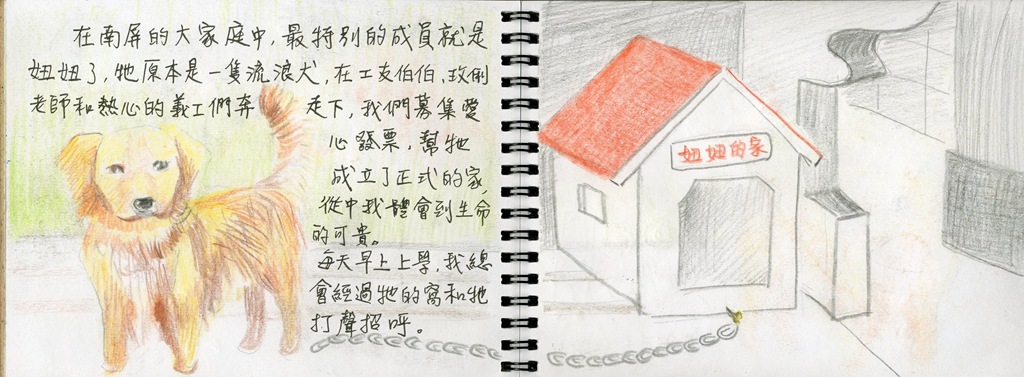 在南屏的大家庭中,最特別的成員就是
妞妞了,牠原本是一隻流浪犬,在工友伯伯,玫俐
老師和熱心的義工們奔走下,我們募集愛
心發票,幫牠
成立了正式的家,
從中我體會到生命
的可貴。
每天早上上學,我總
會經過牠的窩和牠
打聲招呼。
妞妞的家